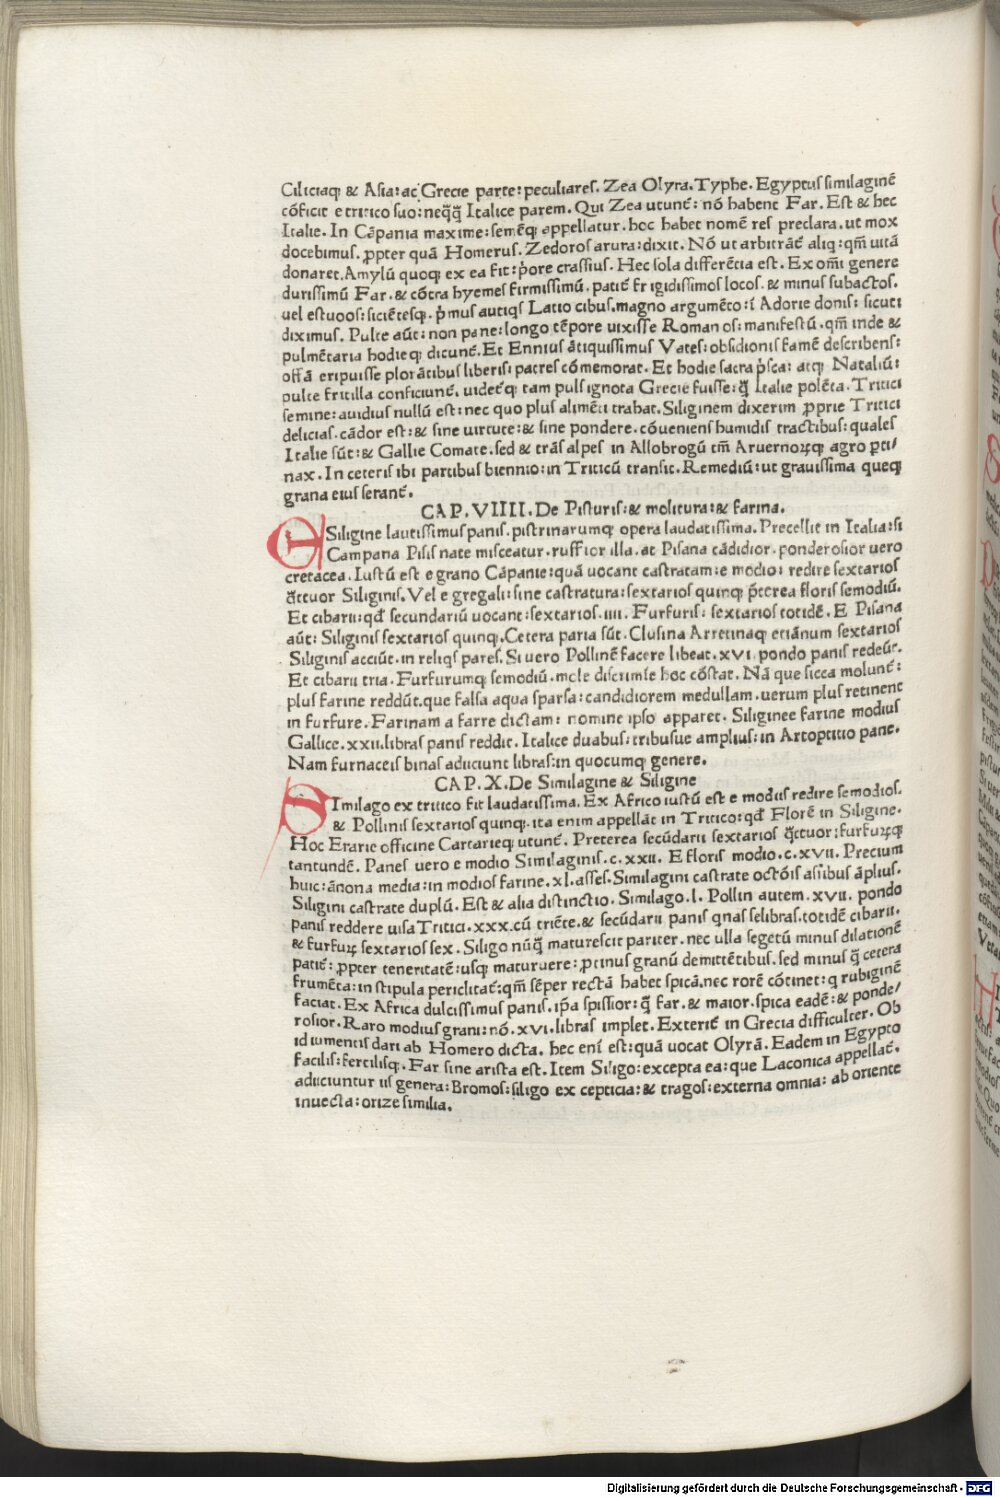 Ciliciaq; & Asia: ac Grecie parte: peculiares. Zea Olyra. Typhe. Egyptus similaginē
cōficit e tritico suo: neq̄q̄ Italice parem. Qui Zea utunt̄: nō habent Far. Est & hec
Italie. In Cāpania maxime: semēq; appellatur. hoc habet nomē res preclara. ut mox
docebimus. ꝓpter quā Homerus. Zedoros arura: dixit. Nō ut arbitrāt̄ aliq: qm̄ uitā
donaret. Amylū quoq; ex ea fit: p̄ore crassius. Hec sola differētia est. Ex om̄i genere
durissimū Far. & cōtra hyemes firmissimū. patit̄ frigidissimos locos. & minus subactos.
uel estuosos: siciētesq;. p̄mus autiqs Latio cibus. magno argumēto: ī Adorie donis: sicuti
diximus. Pulte aūt: non pane: longo tēpore uixisse Romanos: manifestū. qm̄ inde &
pulmētaria hodieq; dicunt̄. Et Ennius ātiquissimus Vates: obsidionis famē describens:
offā eripuisse plorātibus liberis: patres cōmemorat. Et hodie sacra p̄sca: atq; Nataliū:
pulte fritilla conficiunt̄. uidet̄q; tam puls ignota Grecie fuisse: q̄ Italie polēta. Tritici
semine: auidius nullū est: nec quo plus alimēti trahat. Siliginem dixerim ꝓprie Tritici
delicias. cādor est: & sine uirtute: & sine pondere. cōueniens humidis tractibus: quales
Italie sūt: & Gallie Comate. sed & trās alpes in Allobrogū tm̄ Aruernoꝝq; agro ꝑti/
nax. In ceteris ibi partibus biennio: in Triticū transit. Remediū: ut grauissima queq;
grana eius serant̄.
CAP. VIIII. De Pisturis: & molitura: & farina.
E Siligine lautissimus panis. pistrinarumq; opera laudatissima. Precellit in Italia: si
Campana Pisis nate misceatur. ruffior illa. at Pisana cādidior. ponderosior uero
cretacea. Iustū est e grano Cāpanie: quā uocant castratam: e modio: redire sextarios
q̄ttuor Siliginis. Vel e gregali: sine castratura: sextarios quinq; p̄terea floris semodiū.
Et cibarii: qđ secundariū uocant: sextarios. iiii. Furfuris: sextarios totidē. E Pisana
aūt: Siliginis sextarios quinq;. Cetera paria sūt. Clusina Arretinaq; etiānum sextarios
Siliginis acciūt. in reliqs pares. Si uero Pollinē facere libeat. xvi. pondo panis redeūt.
Et cibarii tria. Furfurumq; semodiū. mole discrimīe hoc cōstat. Nā que sicca molunt̄:
plus farine reddūt. que falsa aqua sparsa: candidiorem medullam. uerum plus retinent
in furfure. Farinam a farre dictam: nomine ipso apparet. Siliginee farine modius
Gallice. xxii. libras panis reddit. Italice duabus: tribusue amplius: in Artoptitio pane.
Nam furnaceis binas adiiciunt libras: in quocumq; genere.
CAP. X. De Similagine & Siligine
SImilago ex tritico fit laudatissima. Ex Africo iustū est e modiis redire semodios.
& Pollinis sextarios quinq;. ita enim appellāt in Tritico: qđ Florē in Siligine.
Hoc Erarie officine Cartarieq; utunt̄. Preterea secūdarii sextarios q̄ttuor: furfuꝝq;
tantundē. Panes uero e modio Similaginis. c. xxii. E floris modio. c. xvii. Precium
huic: ānona media: in modios farine. xl. asses. Similagini castrate octōis assibus āplius.
Siligini castrate duplū. Est & alia distinctio. Similago. l. Pollin autem. xvii. pondo
panis reddere uisa Tritici. xxx. cū triēte. & secūdarii panis qnas selibras. totidē cibarii.
& furfuꝝ sextarios sex. Siligo nūq̄ maturescit pariter. nec ulla segetū minus dilationē
patit̄: ꝓpter teneritatē: usq; maturuere: ꝓtinus granū demittētibus. sed minus q̄ cetera
frumēta: in stipula periclitat̄: qm̄ sēper rectā habet spicā. nec rorē cōtinet: q rubiginē
faciat. Ex Africa dulcissimus panis. ipsa spissior: q̄ far. & maior. spica eadē: & ponde/
rosior. Raro modius grani: nō. xvi. libras implet. Exterit̄ in Grecia difficulter. Ob
id iumentis dari ab Homero dicta. hec enī est: quā uocat Olyrā. Eadem in Egypto
facilis: fertilisq;. Far sine arista est. Item Siligo: excepta ea: que Laconica appellat̄.
adiiciuntur iis genera: Bromos: siligo ex cepticia: & tragos: externa omnia: ab oriente
inuecta: orize similia.
Digitalisierung gefördert durch die Deutsche Forschungsgemeinschaft - DFG